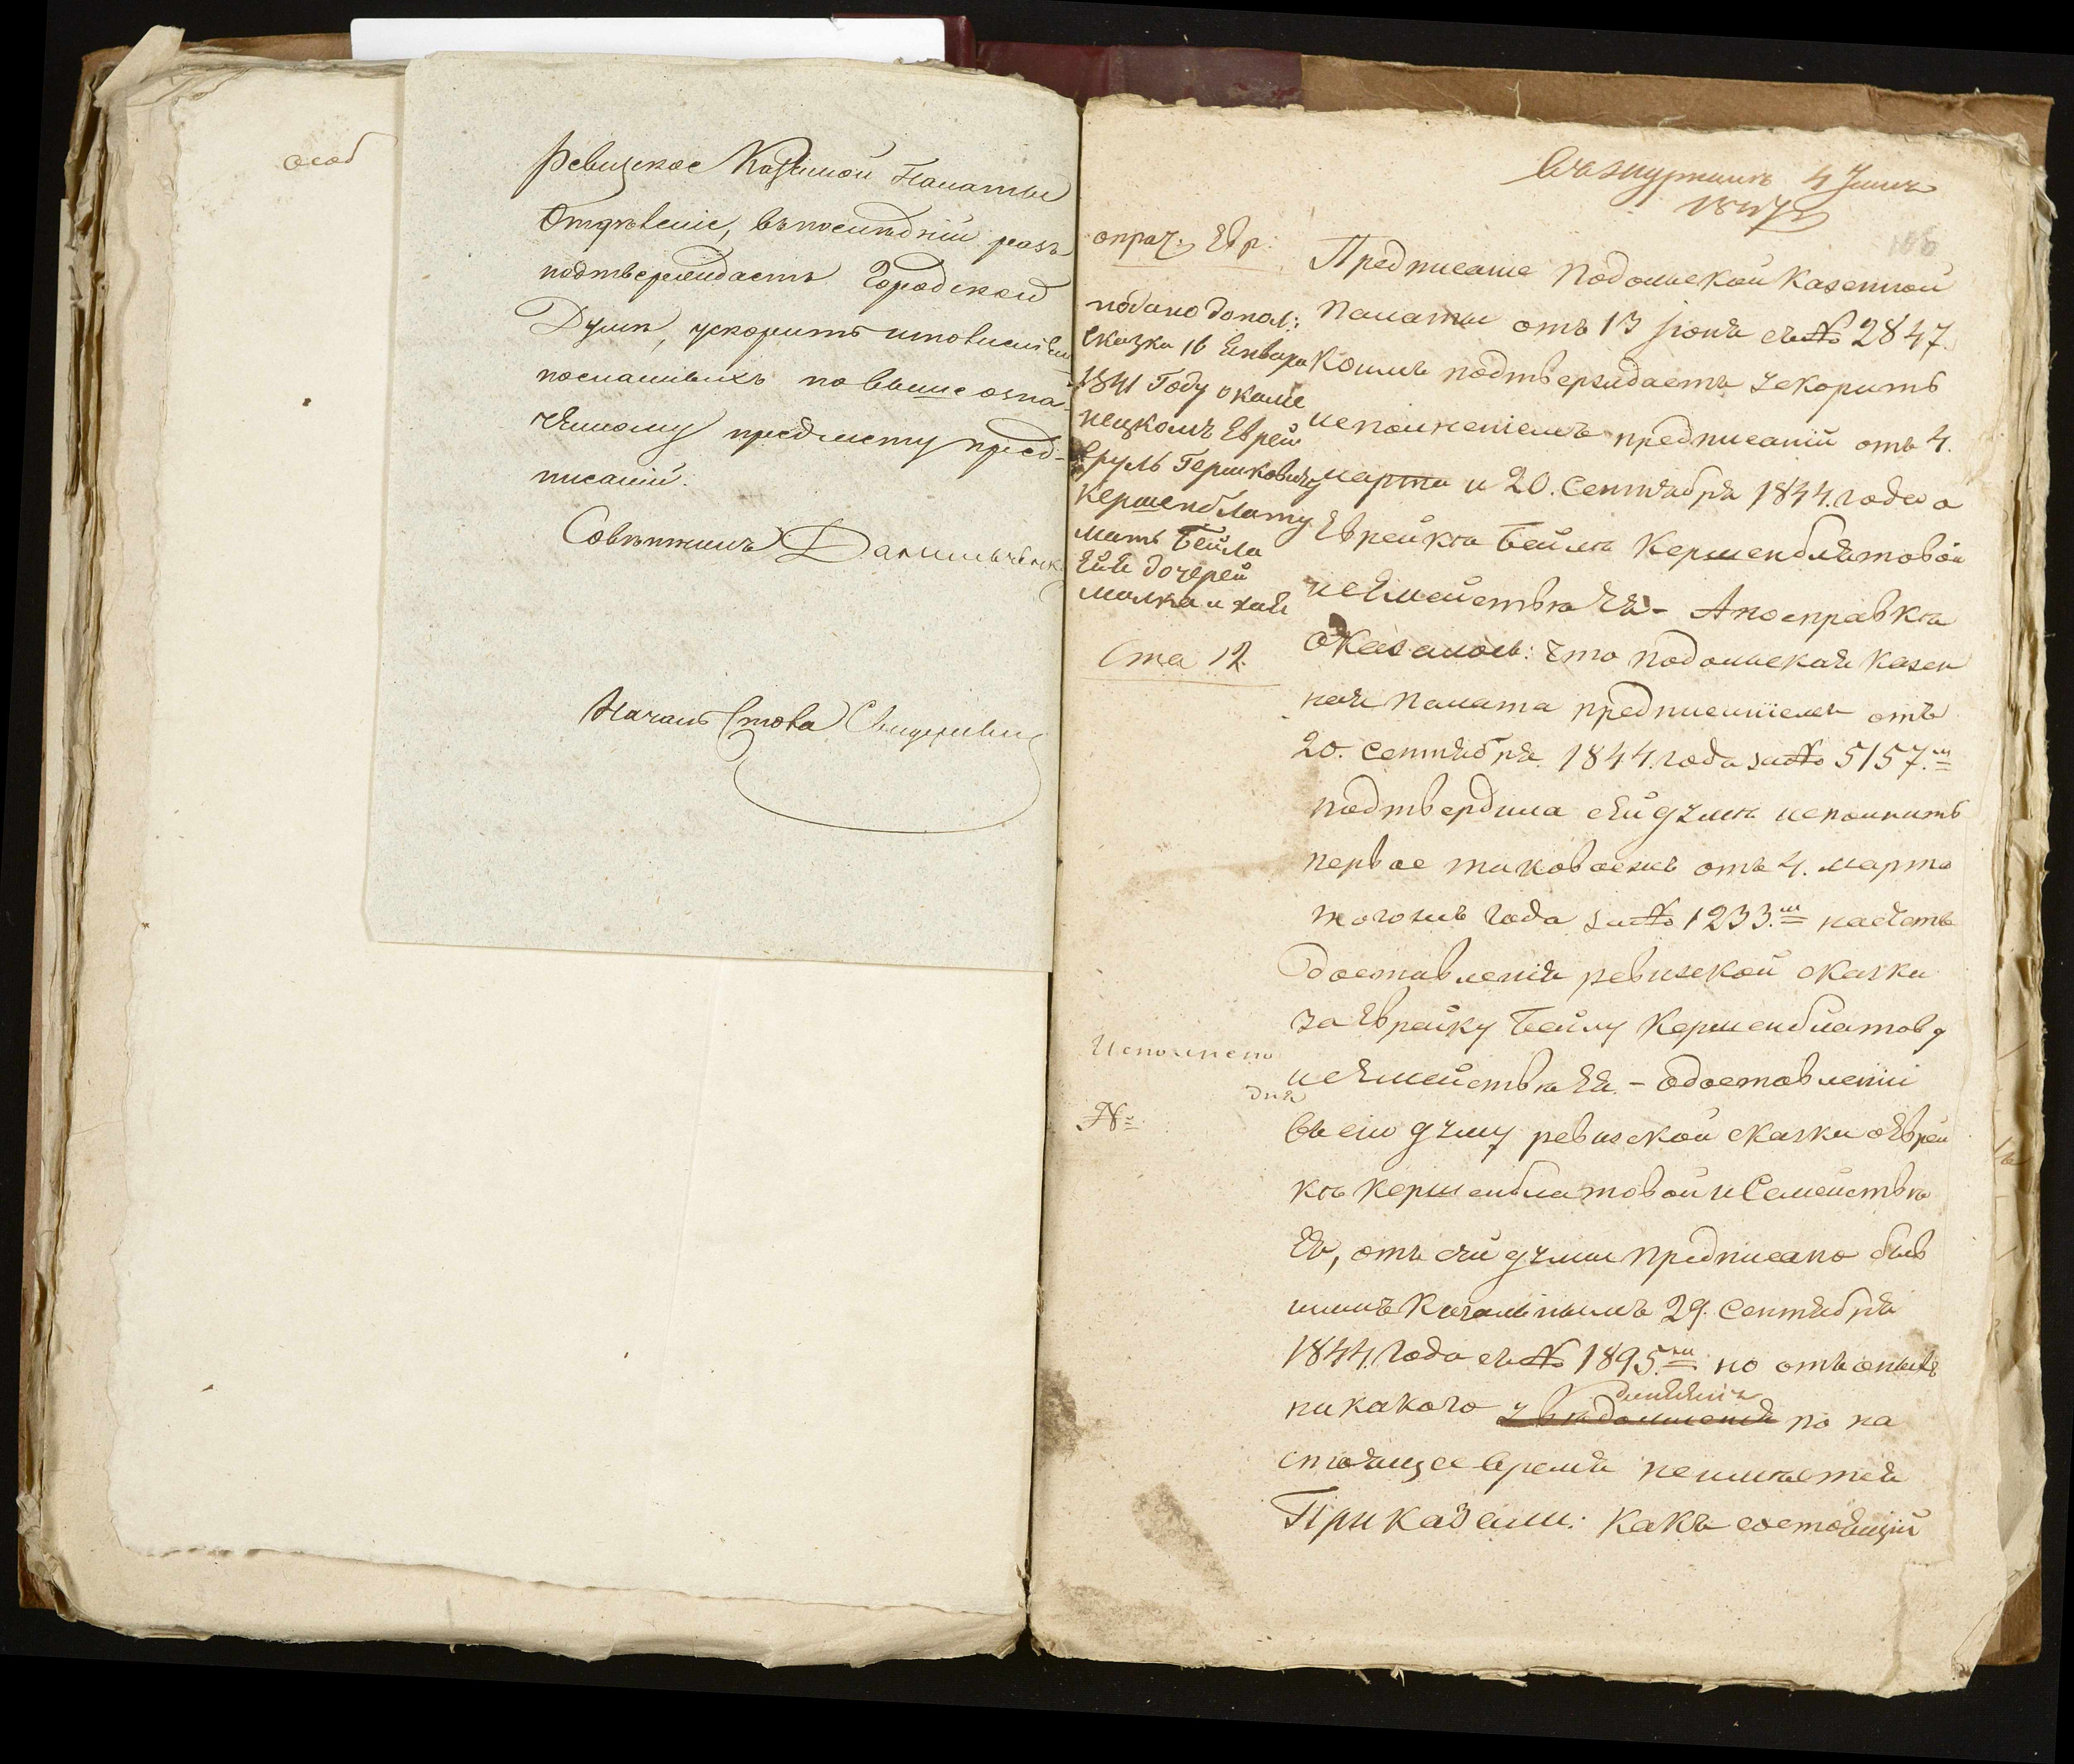 особ
Ревизское Казенной Палаты
Отделеніе, въ последній разъ
подтверждаетъ Городской
Думѣ, ускорить исполненіемъ
посланныхъ по вышеозна-
ченному предмету пред-
писаній.
Совѣтникъ
Началь Стола
4
184
опрач: Евр:
подано допол:
сказка 16 Енваря
1841 Году о каме
нецкомъ Еврей
Сруль Гершковичу
Кершенблату
мать Бейла
Ейи дочерей
малка и хая
Ста 12.
Исполнено
дня
№
Предписаніе Подольской Казенной
Палаты отъ 13 Іюня съ № 2847.
Коимъ подтверждаетъ ускорить
исполненіемъ предписаній отъ 4.
марта и 20. Сентября 1844. года о
Еврейкѣ Бейлѣ Кершенблятовой
исемействѣ Ея - Апосправкѣ
Оказалось: что Подольская Казен
ная Палата предписаніемъ отъ
20. Сентября 1844. года за № 5157.м
подтвердила сей думѣ исполнить
первое таковоежъ отъ 4. марта
тогожъ года за № 1233.м насчетъ
доставленія ревизской сказки
за Еврейку Бейлу Кершенблатову
исемействѣ Ея. - Одоставленіи
въ сію думу ревизской сказки о Еврей
кѣ Кершенблатовой и Семействѣ
Ея, отъ сей думы предписано быв
шимъ Кагальнымъ 29. Сентября
1844. года съ № 1895.мъ но отъ оныхъ
никакого увѣдомленія по на
стоящее время неимѣется
Приказали: Какъ состоящій